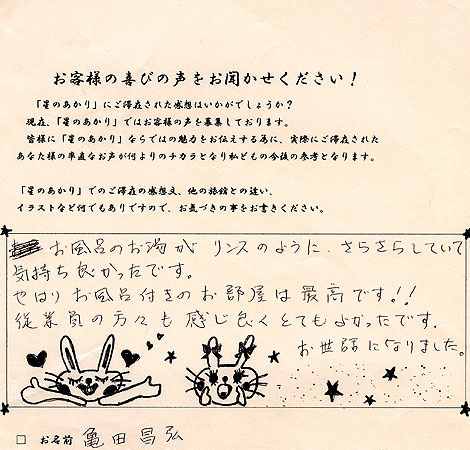 お客様の喜びの声をお聞かせください！
「星のあかり」にご滞在された感想はいかがでしょうか？
現在、「星のあかり」ではお客様の声を募集しております。
皆様に「星のあかり」ならではの魅力をお伝えする為に、実際にご滞在された
あなた様の率直なお声が何よりのチカラとなり私どもの今後の参考となります。
「星のあかり」でのご滞在の感想文、他の旅館との違い、
イラストなど何でもありですので、お気づきの事をお書きください。
お風呂のお湯が リンスのように、さらさらしていて
気持ち良かったです。
やはり お風呂付きの お部屋は 最高です!!
従業員の方々も 感じ良く とてもよかったです。
お世話になりました。
□ お名前 亀田昌弘